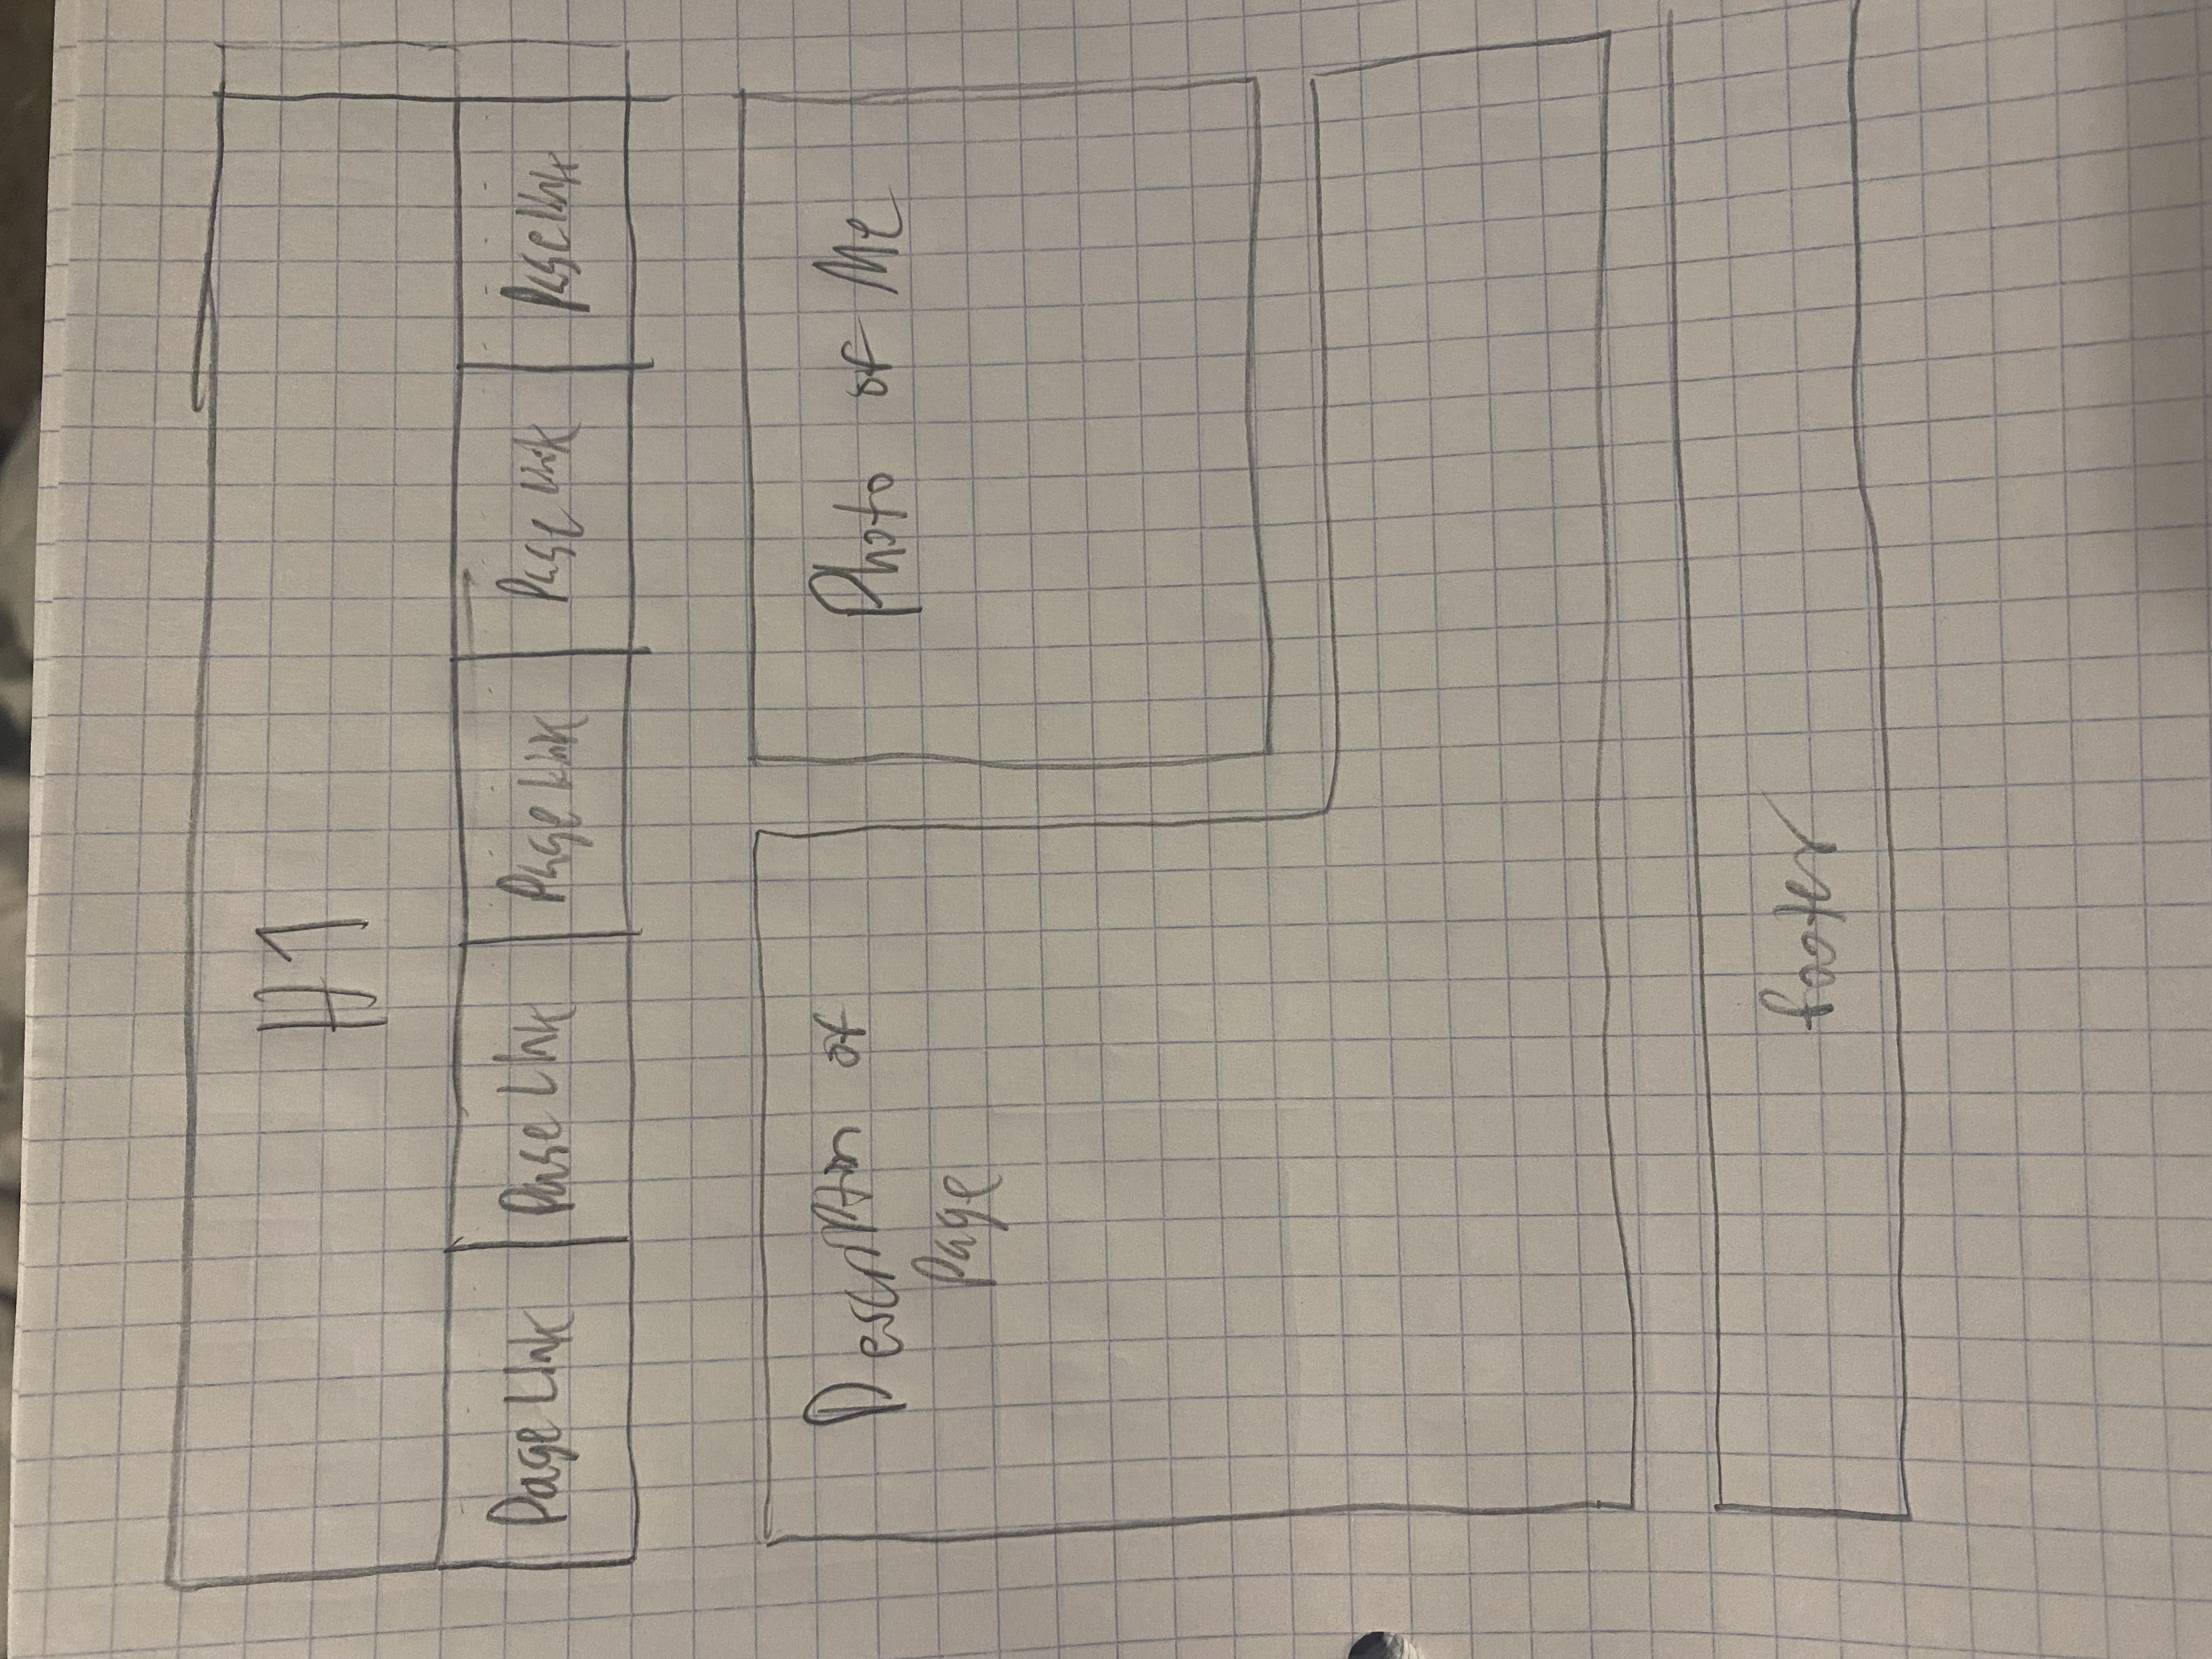 H1
Page Link
Page Link
Page Link
Page Link
Page Link
Description of
Page
Photo of Me
footer